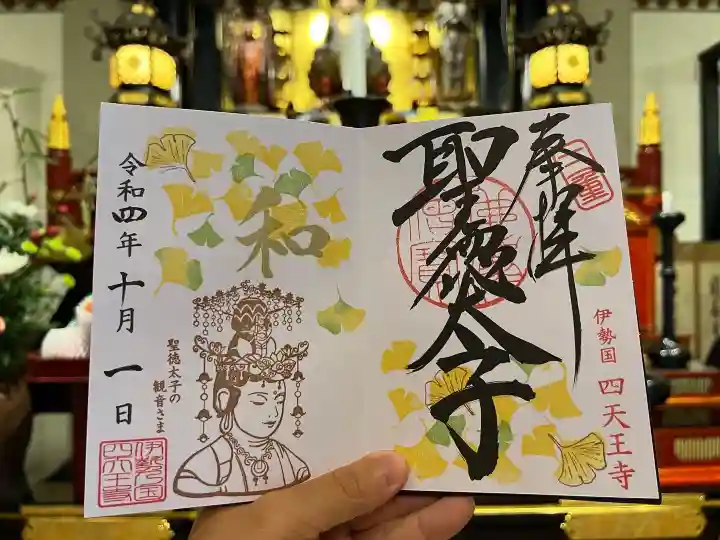 奉拝
聖徳太子
伊勢国 四天王寺
和
聖徳太子の
観音さま
令和四年 十月 一日